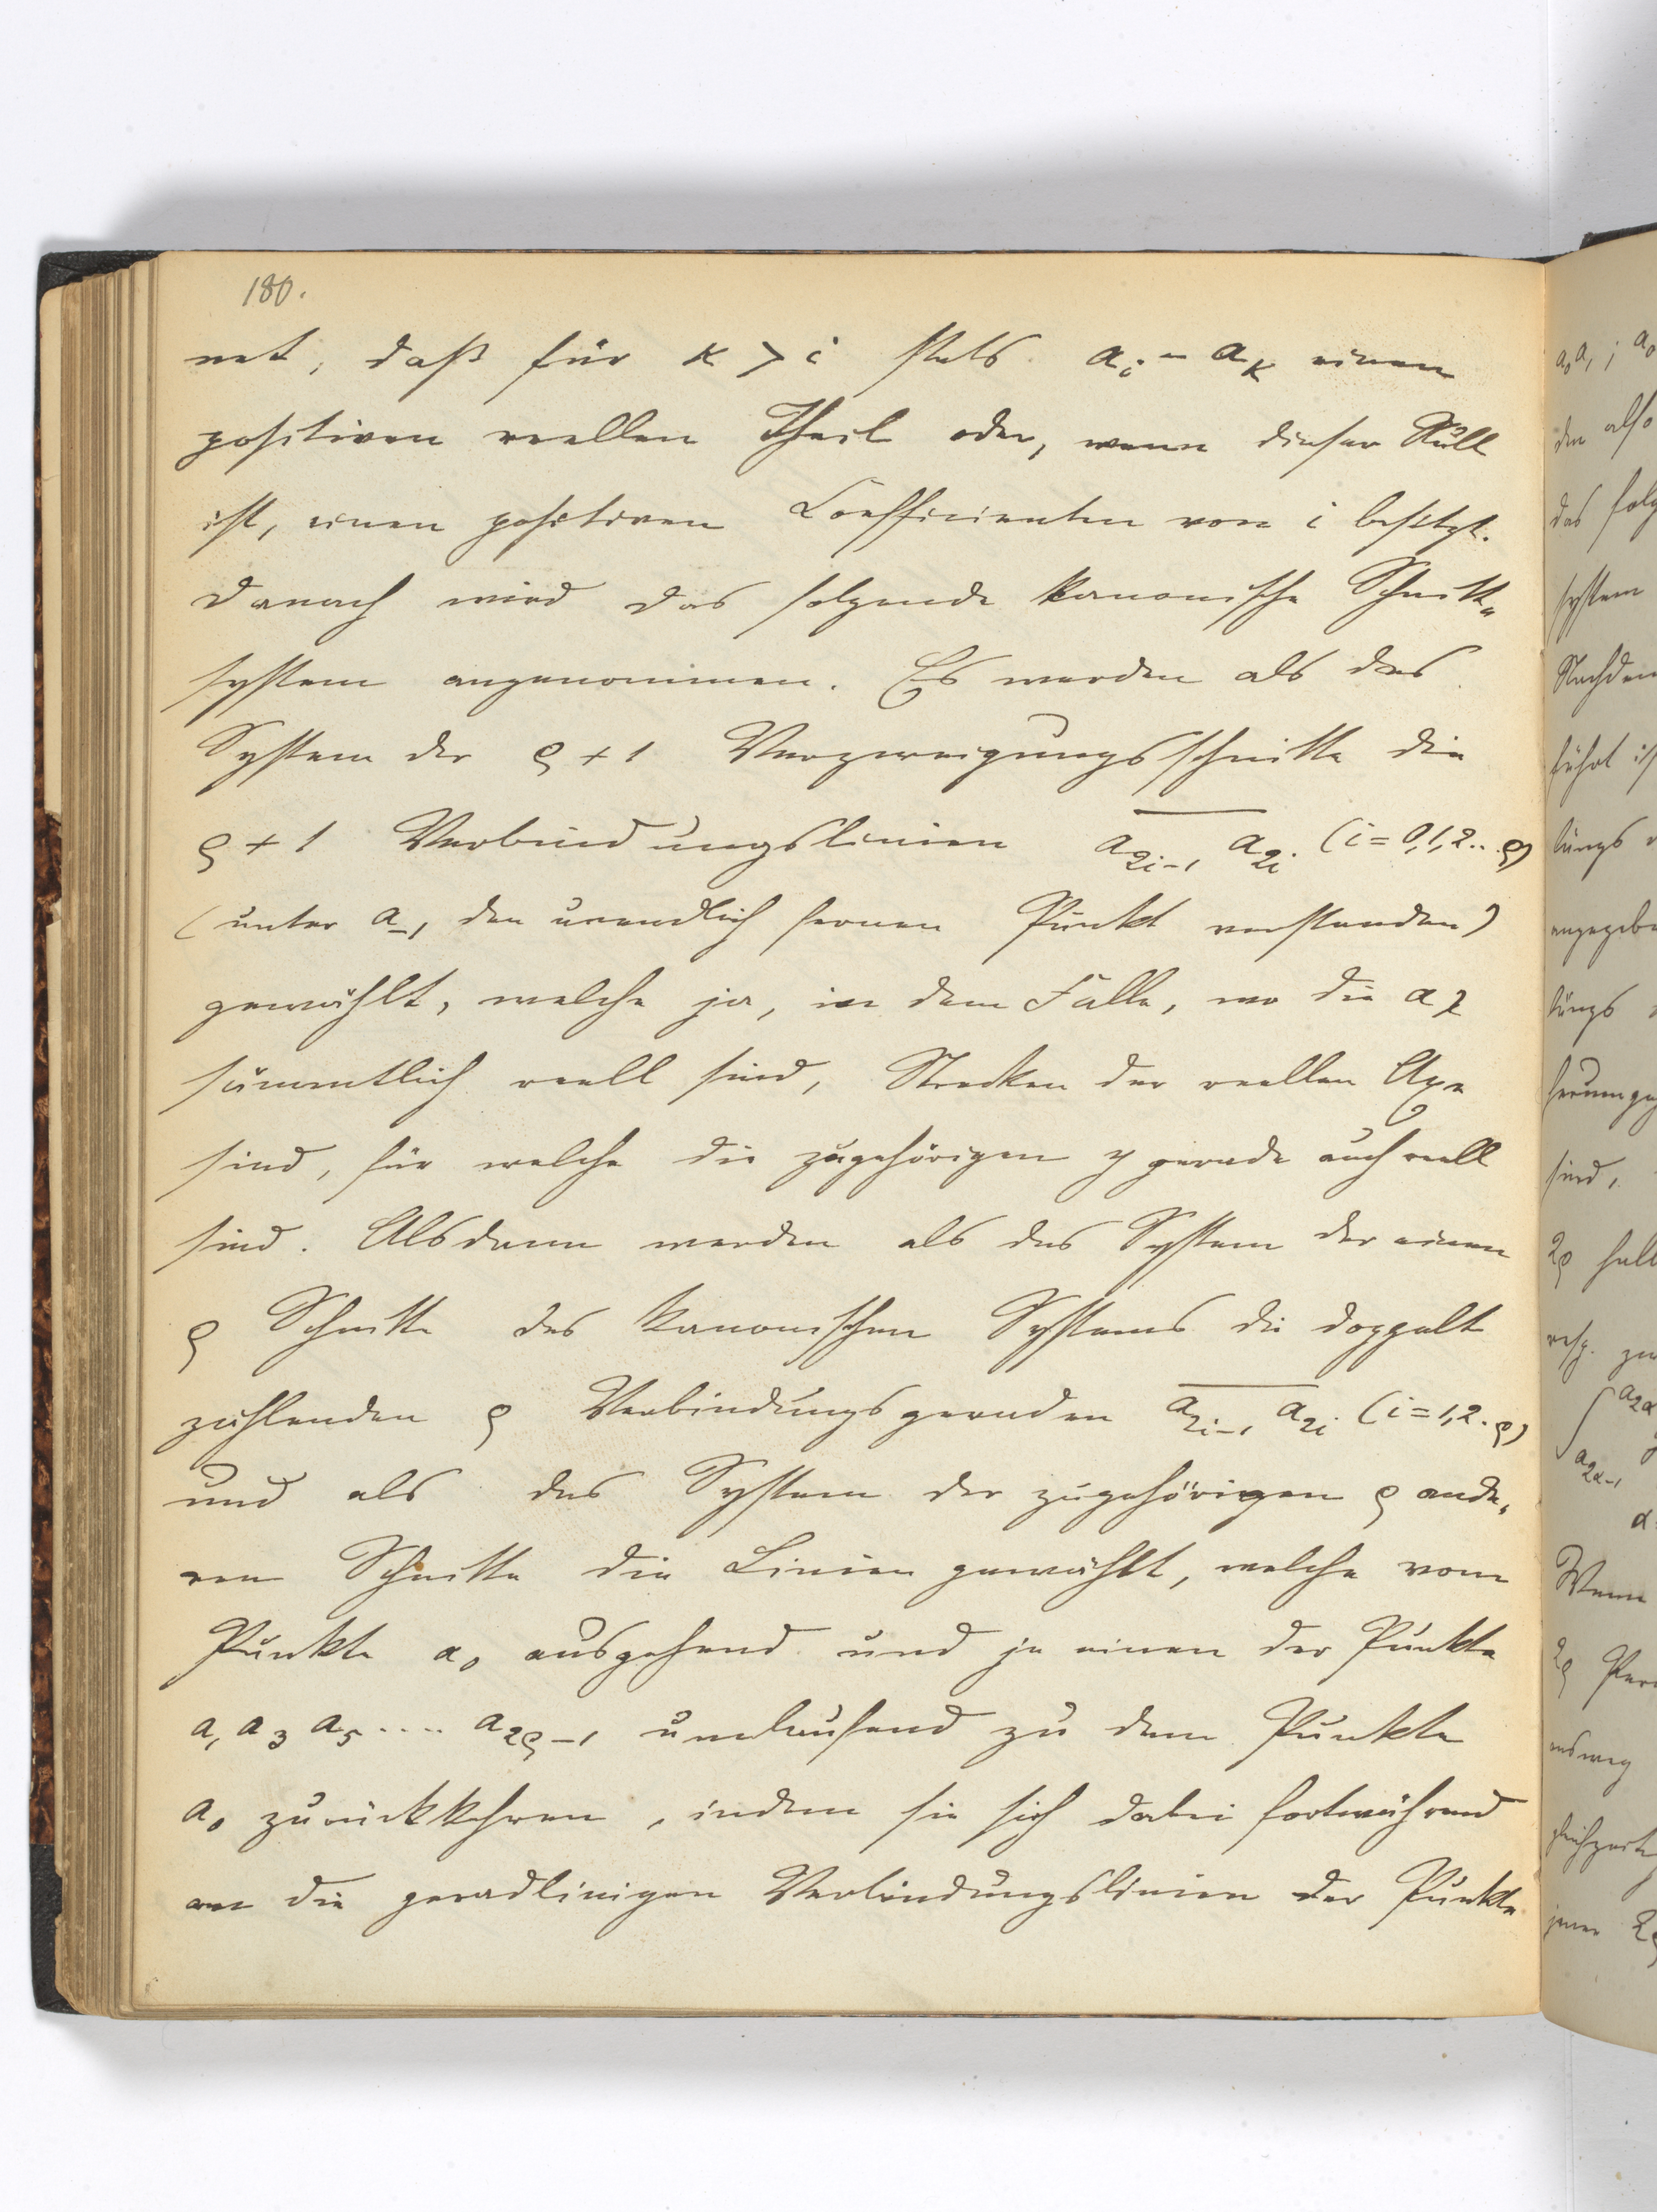 180.
net, daß für κ > i stets a_i - a_κ einen
positiven reellen Theil oder, wenn dieser Null
ist, einen positiven Coefficienten von i besitzt.
Danach wird das folgende kanonische Schnitt-
system angenommen. Es werden als das
System der ϱ + 1 Verzweigungsschnitte die
ϱ + 1 Verbindungslinien \overline{a_{2i-1} a_{2i}} (i = 0,1,2..ϱ)
(unter a_{-1} den unendlich fernen Punkt verstanden)
gewählt, welche ja, in dem Falle, wo die a_λ
sämmtlich reell sind, Strecken der reellen Axe
sind, für welche die zugehörigen y gerade auch reell
sind. Alsdann werden als das System der einen
ϱ Schnitte des kanonischen Systems die doppelt
zählenden ϱ Verbindungsgeraden \overline{a_{2i-1} a_{2i}} (i = 1,2..ϱ)
und als das System der zugehörigen ϱ ande-
ren Schnitte die Linien gewählt, welche vom
Punkte a_0 ausgehend und je einen der Punkte
a_1 a_3 a_5 .... a_{2ϱ-1} umlaufend zu dem Punkte
a_0 zurückkehren, indem sie sich dabei fortwährend
an die geradlinigen Verbindungslinien der Punkte
a_0 a_1 ; a_0
den also
das folg
system
Nachdem
führt is
tungs
angegebe
tungs
herumge
sind,
2ϱ
resp. zu
∫ a_{2α}
a_{2α-1}
α
Wenn
2ϱ Per
jener 2ϱ